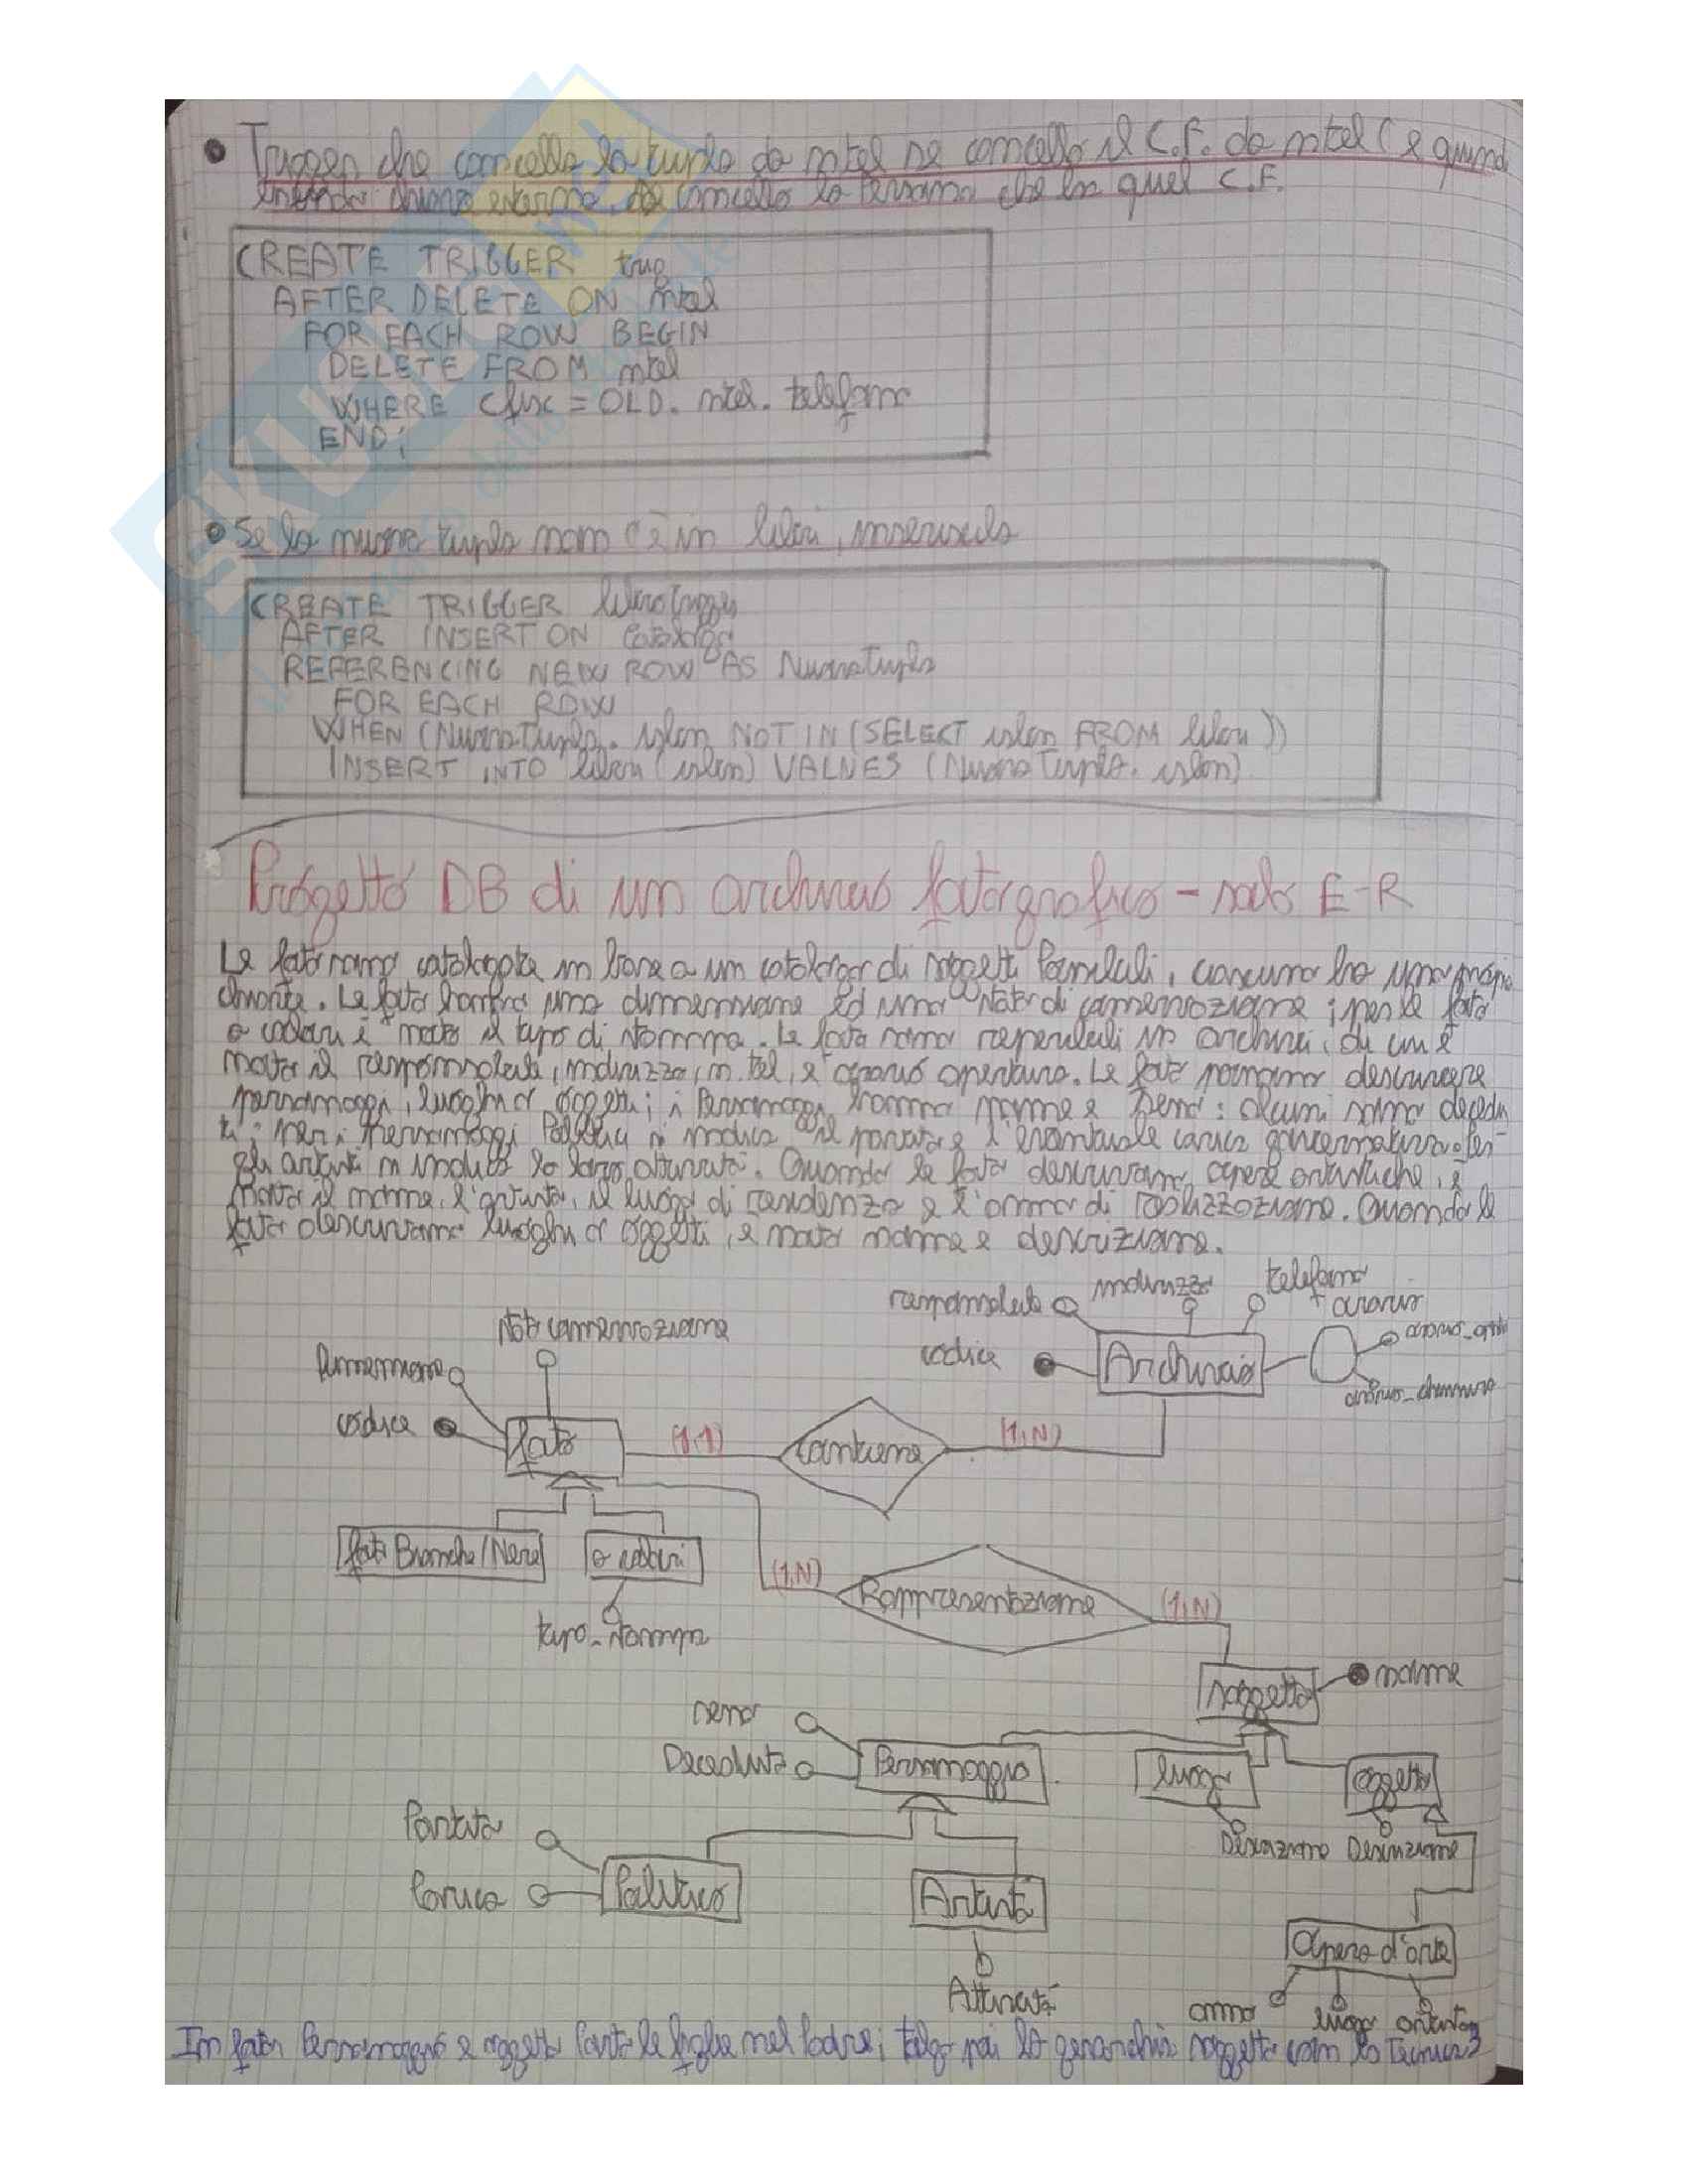 • Trigger che cancella la tupla da ntel se cancello il C.F. da ntel (e quindi
chiave esterna, se cancello la Persona che ha quel C.F.
CREATE TRIGGER trig
AFTER DELETE ON ntel
FOR EACH ROW BEGIN
DELETE FROM ntel
WHERE cfisc = OLD. ntel. telefono
END;
• Se la nuova tupla non c'è in libri, inseriscila
CREATE TRIGGER libroTrigger
AFTER INSERT ON catalogo
REFERENCING NEW ROW AS NuovaTupla
FOR EACH ROW
WHEN (NuovaTupla. isbn NOT IN (SELECT isbn FROM libri))
INSERT INTO libri (isbn) VALUES (NuovaTupla. isbn)
Progetto DB di un archivio fotografico - solo E-R
Le foto sono catalogate in base a un catalogo di soggetti Possibili, ciascuna ha una
Le foto hanno una dimensione ed uno stato di conservazione; per le foto
a colori è noto il tipo di stampa. Le foto sono reperibili in archivi, di cui è
noto il responsabile, indirizzo, n. tel, e orario apertura. Le foto possono descrivere
personaggi, luoghi o oggetti; i Personaggi hanno nome e sesso; alcuni sono decedu
ti; per i personaggi Politici si indica il partito e l'eventuale carica governativa. Per
gli artisti si indica la loro attività. Quando le foto descrivono opere artistiche, è
noto il nome, l'artista, il luogo di residenza e l'anno di realizzazione. Quando le
foto descrivono luoghi o oggetti, è noto nome e descrizione.
responsabile
indirizzo
telefono
orario
codice
Archivio
orario_chiusura
Stato conservazione
Dimensione
codice
foto
(1,1)
contiene
(1,N)
foto Bianche/Nere
a colori
tipo_stampa
(1,N)
Rappresentazione
(1,N)
soggetto
nome
sesso
Deceduto
Personaggio
luogo
oggetto
Descrizione
Descrizione
Partito
Carica
Politico
Artista
Attività
Opera d'arte
anno
luogo
artista
In foto, Personaggio e oggetto Porto le figlie nel Padre; tolgo poi la gerarchia soggetto con la Tecnica 3